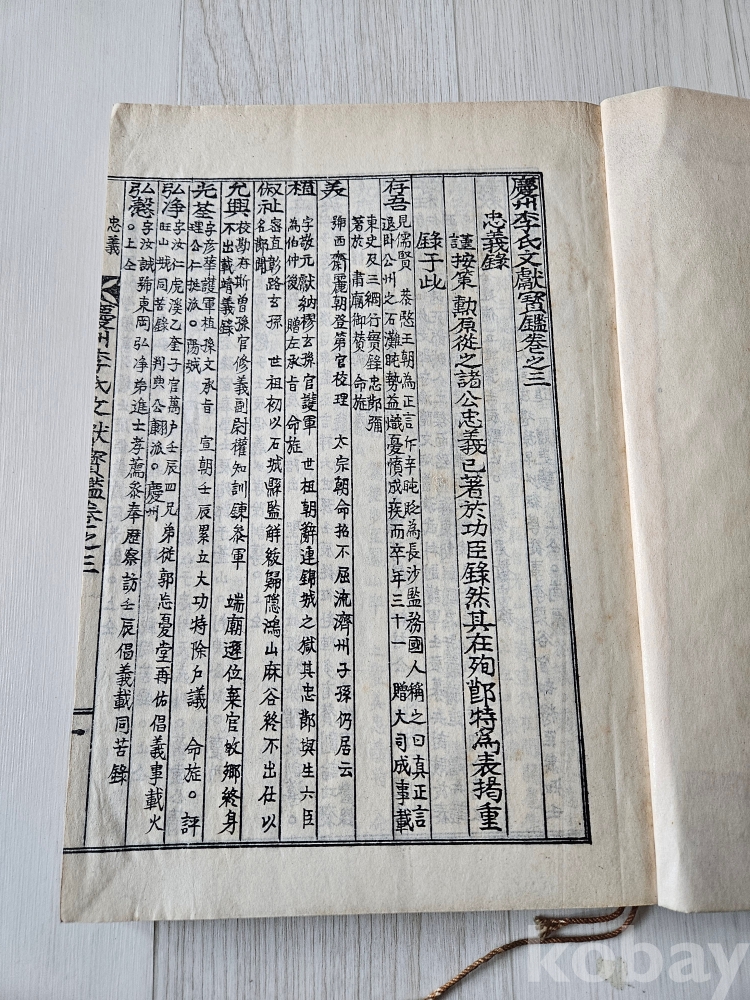 慶州李氏文獻寶鑑卷之三
忠義錄
謹按策 勳原從之諸公忠義已著於功臣錄然其在殉節特爲表揭重
錄于此
存吾
見儒賢 恭愍王朝為正言斥辛旽貶為長沙監務國人稱之曰真正言
退卧公州之石灘旽勢益熾憂憤成疾而卒年三十一 贈大司成事載
東史及三綱行實錄忠節彌
著於 肅廟御贊 命旌
美
號西齋麗朝登第官校理 太宗朝命招不屈流濟州子孫仍居云
植
字敬元獻納繆玄孫官護軍 世祖朝辭連錦城之獄其忠節與生六臣
為伯仲後 贈左承旨 命旌
俶祉
容直彰路玄孫 世祖初以石城縣監解紱歸隱鴻山麻谷終不出仕以
名節聞
允興
校勘存斯曾孫官修義副尉權知訓鍊參軍 端廟遜位棄官故鄉終身
不出載靖義錄
光荃
字彦華護軍植孫文承旨 宣朝壬辰累立大功特除戶議 命旌。評
理公仁挺派。陽城
弘淨
字汝仁虎溪乙奎子官萬户壬辰四兄弟從郭忘憂堂再佑倡義事載火
旺山城同苦錄 判典公翮派。慶州
弘慤
字汝誠號東岡弘淨弟進士孝薦參奉歷察訪壬辰倡義載同苦錄
。上仝
忠義
慶州李氏文獻寶鑑卷之三
一
kobay